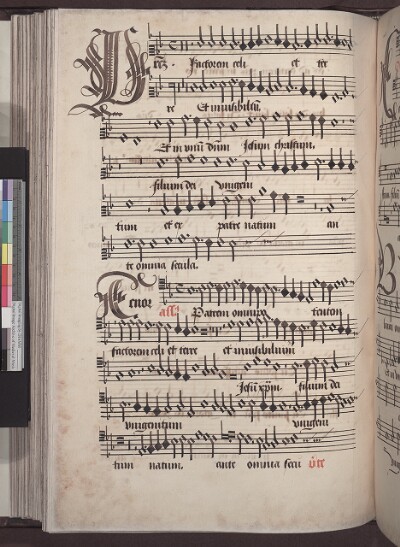 factorem celi et ter
re Et inuisibiliū
Et in vnū dnm Jesum christum.
filium dei vnigeni
tum et ex patre natum an
te omnia secula.
Tenor
Patrem omnipo tentem
factorem celi et terre et inuisibilium
Jesū xpm. filium dei
vnigenitum vnigeni
tum natum. ante omnia secu